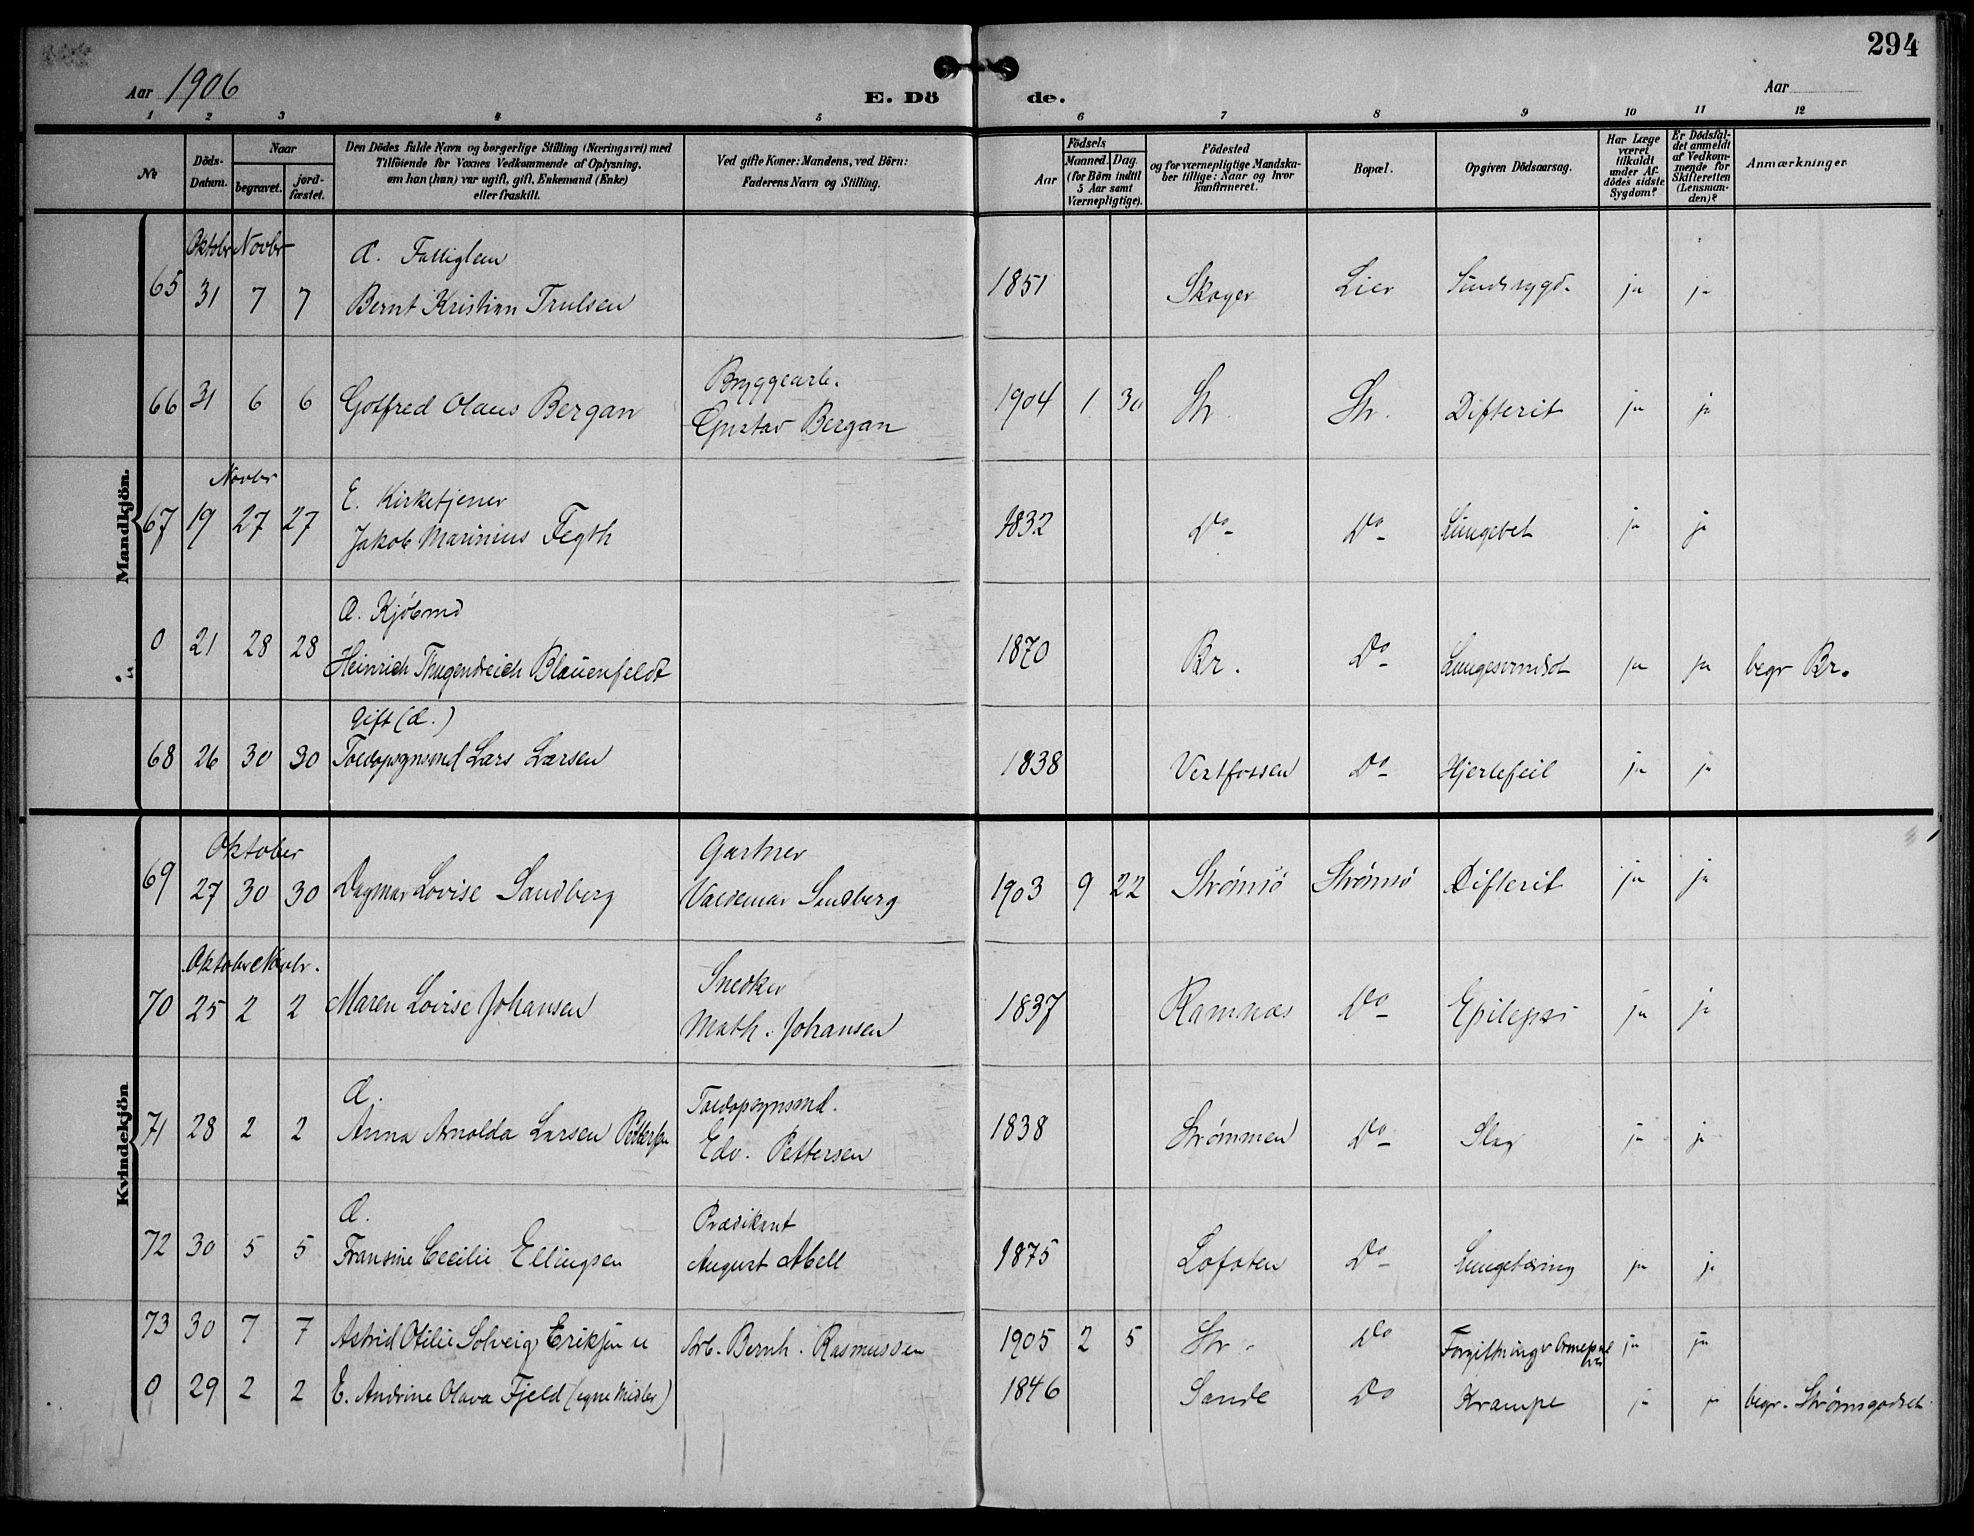 294
Aar 1906
E. Dö de.
Aar
1 2 3 4 5 6 7 8 9 10 11 12
No
Döds-Datum.
Naar
begravet.
jord-fæstet.
Den Dödes fulde Navn og borgerlige Stilling (Næringsvei) med
Tilföiende for Voxnes Vedkommende af Oplysning,
om han (hun) var ugift, gift, Enkemand (Enke)
eller fraskilt.
Ved gifte Koner: Mandens, ved Börn:
Faderens Navn og Stilling.
Födsels
Aar
Maaned. Dag.
(for Börn indtil
5 Aar samt
Værnepligtige).
Födested
og for værnepligtige Mandska-
ber tillige: Naar og hvor
Konfirmeret.
Bopæl.
Opgiven Dödsaarsag.
Har Læge
været
tilkaldt
under Af-
dödes sidste
Sygdom?
Er Dödsfal-
det anmeldt
af Vedkom-
mende for
Skifteretten
(Lensman-
den)?
Anmærkninger
Mandkjön.
Oktobr Novbr
Æ. Fattiglem
65 31 7 7 Bernt Kristian Trulsen 1851 Skoger Lier Sindssygd. ja ja
Bryggearb.
66 31 6 6 Gotfred Olaus Bergan Gustav Bergan 1904 1 30 Str. Str. Difterit ja ja
Novbr
E. Kirketjener
67 19 27 27 Jakob Marinius Fegth 1832 Do Do Lungebet ja ja
Æ. Kjøbmd
0 21 28 28 Heinrich Thugendreich Blauenfeldt 1870 Br. Do Lungesvindsot ja ja begr Br.
Gift (Æ.)
68 26 30 30 Toldopsynsmd Lars Larsen 1838 Vestfossen Do Hjertefeil ja ja
Kvindekjön
Oktober
Gartner
69 27 30 30 Dagmar Lovise Sandberg Valdemar Sandberg 1903 9 22 Strømsö Strømsö Difterit ja ja
Oktober Novbr.
Snedker
70 25 2 2 Maren Lovise Johansen Math. Johansen 1837 Ramnæs Do Epilepsi ja ja
Æ. Toldopsynsmd.
71 28 2 2 Anna Arnolda Larsen Pettersen Edv. Pettersen 1838 Strømmen Do Slag ja ja
Æ. Prædikant
72 30 5 5 Fransine Cecilie Ellingsen August Abell 1875 Lofoten Do Lungetæring ja ja
73 30 7 7 Astrid Otilie Solveig Eriksen u Arb. Bernh. Rasmussen 1905 2 5 Str. Do Forgiftning ja ja
0 29 2 2 E. Andrine Olava Fjeld (egne Midler) 1846 Sande Do Krampe ja ja begr. Strømsgodset